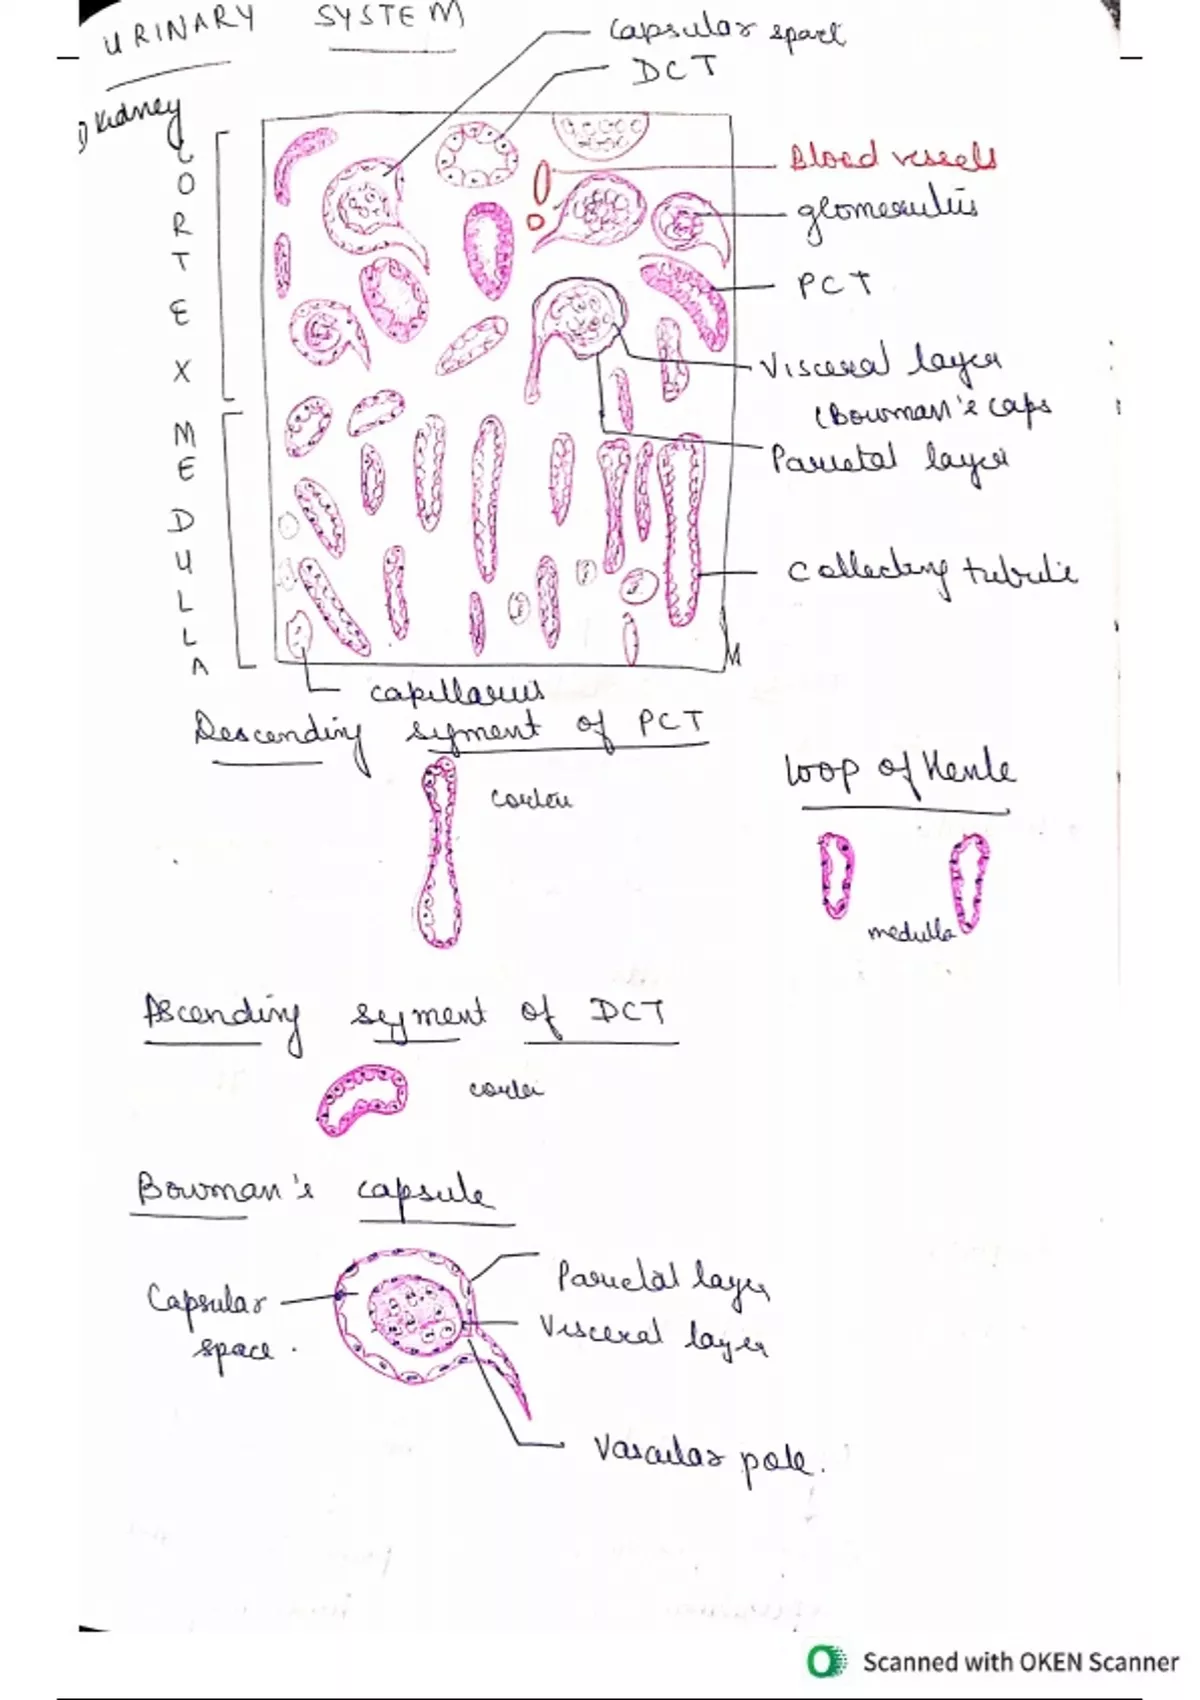 URINARY SYSTEM
1) Kidney
CORTEX
MEDULLA
Capsular space
DCT
Blood vessels
glomerulus
PCT
Visceral layer
(Bowman's caps
Parietal layer
Collecting tubule
capillaries
Descending segment of PCT
cortex
Loop of Henle
medulla
Ascending segment of DCT
cortex
Bowman's capsule
Capsular
space.
Parietal layer
Visceral layer
Vascular pole.
Scanned with OKEN Scanner